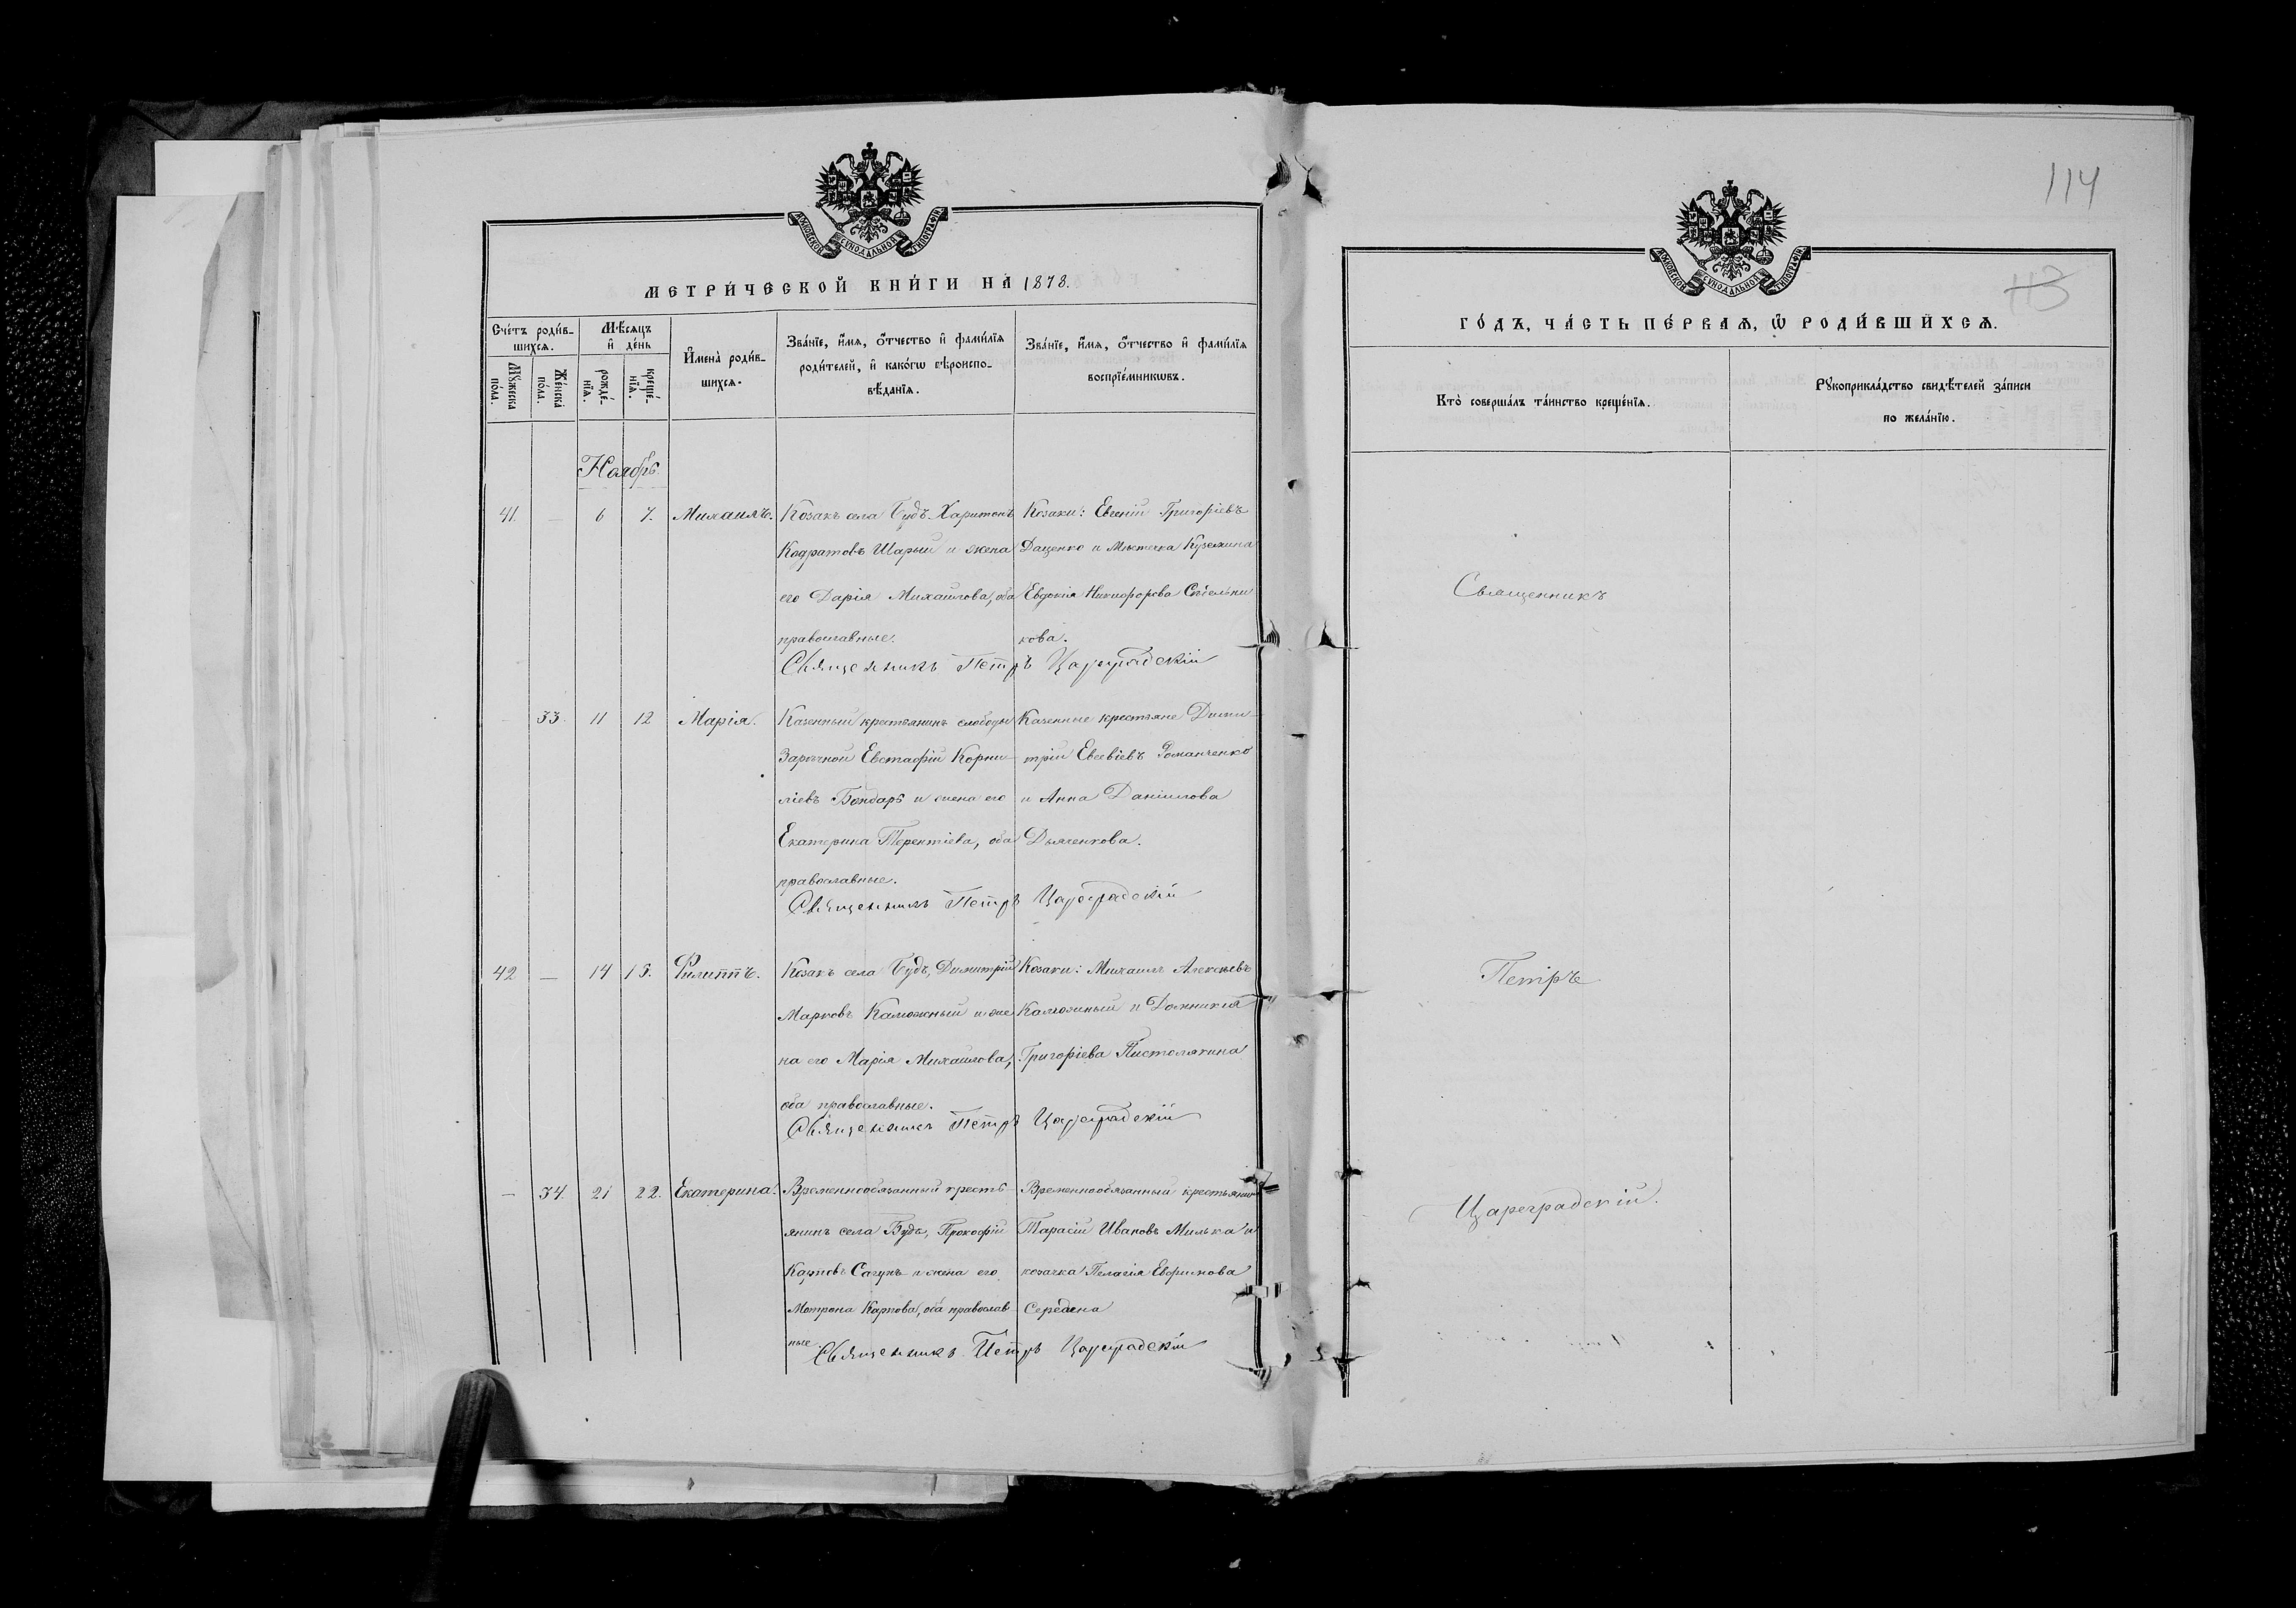 114
113
МОСКОВСКОЙ СѴНОДАЛЬНОЙ ТИПОГРАФІИ
МЕТРИ́ЧЕСКОЙ КНИ́ГИ НА 1878.
Сче́тъ роди́в-
шихсѧ.
Мꙋ́жеска по́ла.
Же́нска по́ла.
Мѣ́сѧцъ
и҆ де́нь
рожде́-
нїѧ.
креще́-
нїѧ.
И҆мена̀ роди́в-
шихсѧ.
Зва́нїе, и҆́мѧ, ѻ҆́тчество и҆ фами́лїѧ
роди́телей, и҆ како́гѡ вѣроиспо-
вѣ́данїѧ.
Зва́нїе, и҆́мѧ, ѻ҆́тчество и҆ фами́лїѧ
воспрїе́мникѡвъ.
Ноябрь
41. — 6 7. Михаилъ.
Козакъ села Будъ Харитонъ
Кодратовъ Шарый и жена
его Дарія Михайлова, оба
православные.
Козаки: Евгеній Григоріевъ
Даценко и Мѣстечка Куземина
Евдокія Никифорова Сѣдельни
кова.
Священникъ Петръ Цареградскій
— 33. 11 12 Марія.
Казенный крестьянинъ слободы
Заречной Евстафій Корни-
ліевъ Бондарь и жена его
Екатерина Терентіева, оба
православные.
Казенные крестьяне Дими-
трій Евсевіевъ Романченко
и Анна Даніилова
Дьяченкова.
Священникъ Петръ Цареградскій
42 — 14 15. Филиппъ.
Козакъ села Будъ, Димитрій
Марковъ Калюжный и же
на его Марія Михайлова,
оба православные.
Козаки: Михаилъ Алексѣевъ
Калюжный и Домникія
Григоріева Пистолякина
Священникъ Петръ Цареградскій
— 34. 21 22. Екатерина.
Временнообязанный кресть-
янинъ села Будъ, Прокофій
Карповъ Сагунъ и жена его
Мотрона Карпова, оба православ-
ные
Временнообязанный крестьянинъ
Тарасій Ивановъ Милька и
козачка Пелагія Евфимова
Середена
Священникъ Петръ Цареградскій
МОСКОВСКОЙ СѴНОДАЛЬНОЙ ТИПОГРАФІИ
ГО́ДЪ, ЧА́СТЬ ПЕ́РВАѦ, Ѡ҆ РОДИ́ВШИХСѦ.
Кто̀ соверша́лъ та́инство креще́нїѧ.
Рꙋкоприкла́дство свидѣ́телей за́писи
по жела́нїю.
Священникъ
Петръ
Цареградскій.